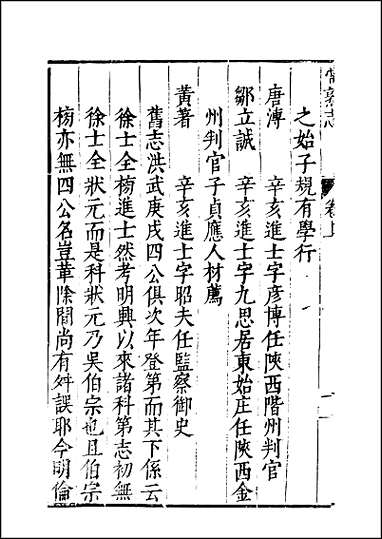 常熟志 卷上
之始子規有學行
唐溥 辛亥進士字彥博任陝西階州判官
鄒立誠 辛亥進士字九思居東始庄任陝西金
州判官子貞應人材薦
黃著 辛亥進士字昭夫任監察御史
舊志洪武庚戌四公俱次年登第而其下係云
徐士全榜進士然考明興以來諸科第志初無
徐士全狀元而是科狀元乃吳伯宗也且伯宗
榜亦無四公名豈革除間尚有舛誤耶今明倫